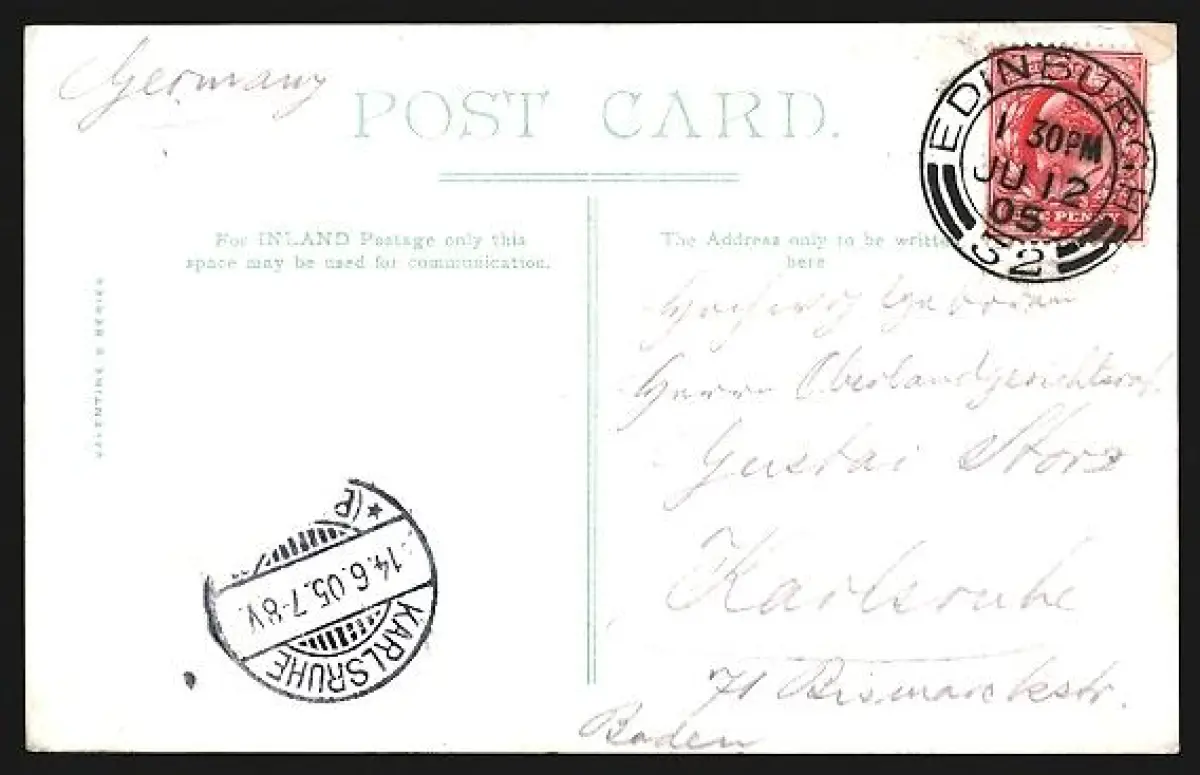 Germany
POST CARD.
For INLAND Postage only this
space may be used for communication.
The Address only to be written
here
VALENTINE'S SERIES
EDINBURGH
1 30PM
JU 12
05
52
PENNY
Hochwohlgeboren
Herrn Oberlandgerichtsrat
Gustav Storz
Karlsruhe
71 Bismarckstr.
Baden
KARLSRUHE
14.6.05.7-8V.
*(B)